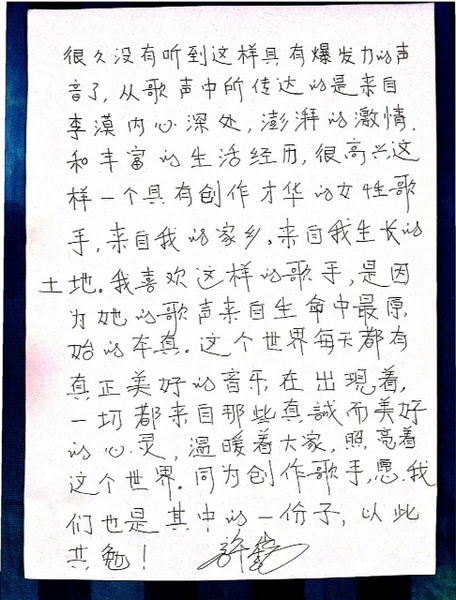 很久没有听到这样具有爆发力的声
音了，从歌声中所传达的是来自
李漠内心深处，澎湃的激情，
和丰富的生活经历，很高兴这
样一个具有创作才华的女性歌
手，来自我的家乡，来自我生长的
土地。我喜欢这样的歌手，是因
为她的歌声来自生命中最原
始的本真。这个世界每天都有
真正美好的音乐在出現着，
一切都来自那些真誠而美好
的心灵，温暖着大家，照亮着
这个世界。同为创作歌手，愿我
们也是其中的一份子，以此
共勉！ 許巍